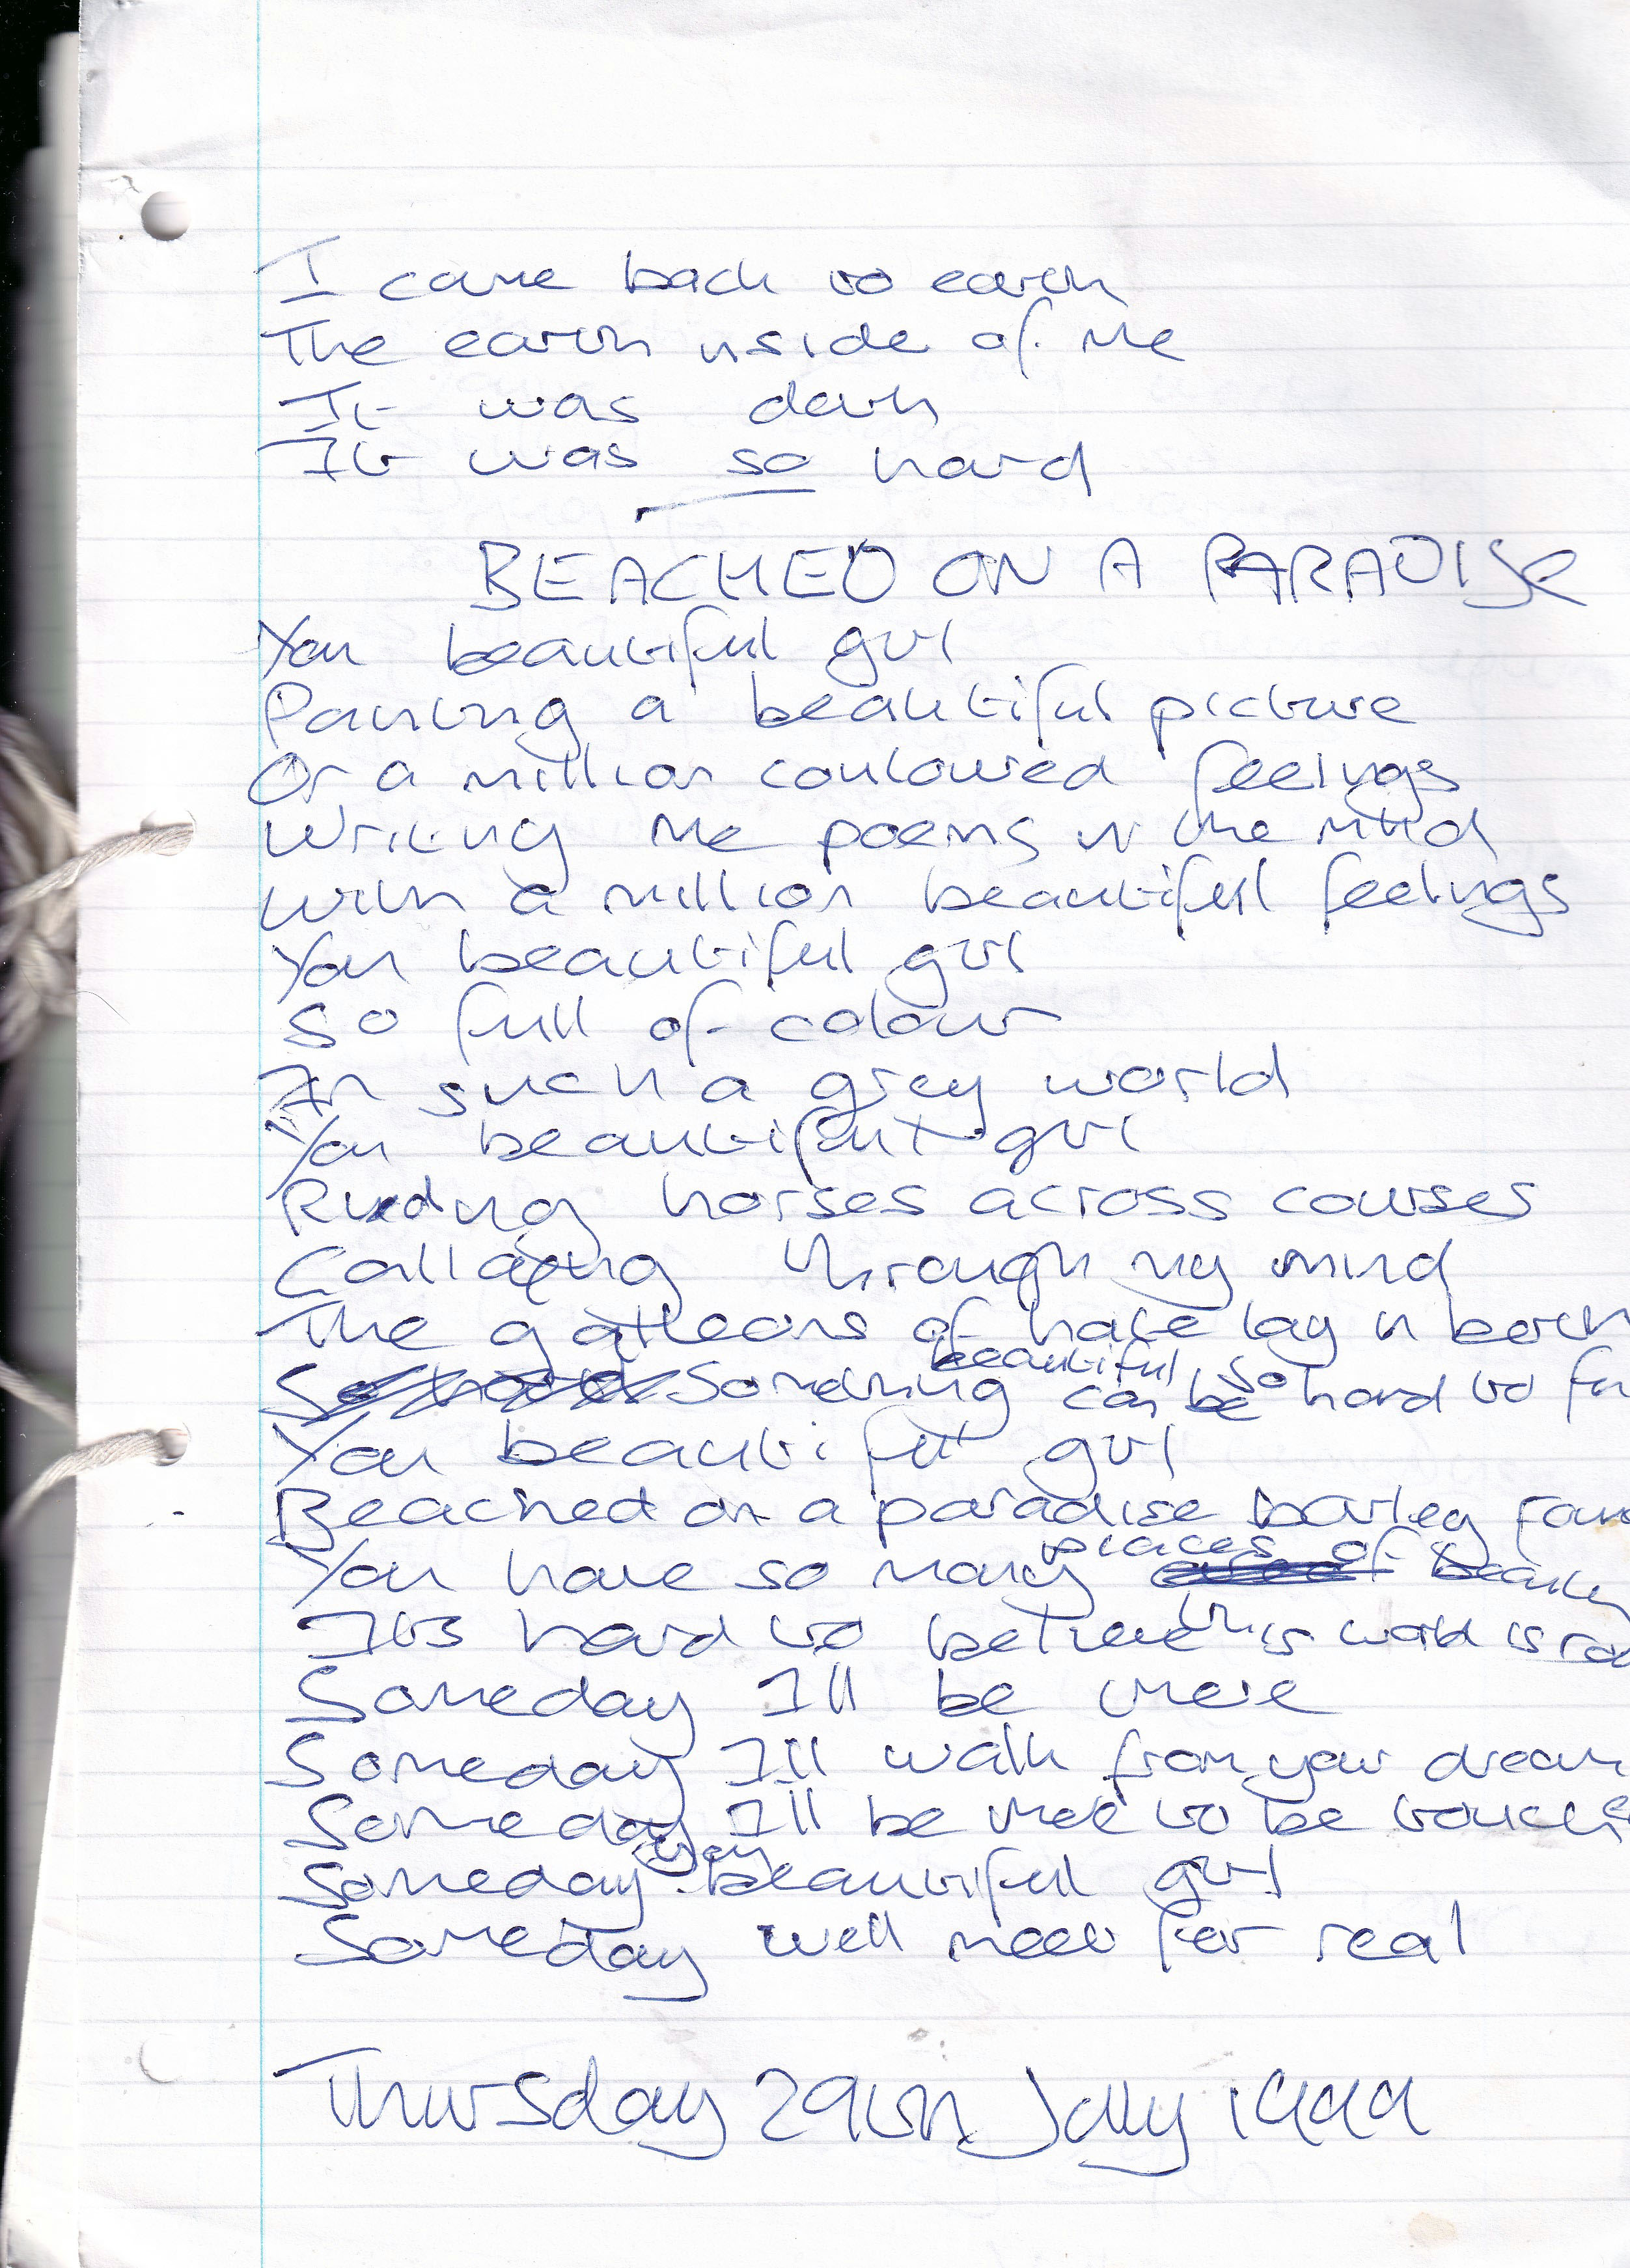 I came back to earth
The earth inside of me
It was dark
It was so hard
BEACHED ON A PARADISE
You beautiful girl
Painting a beautiful picture
Of a million coulowred feelings
Writing me poems in the mind
With a million beautiful feelings
You beautiful girl
So full of colour
In such a grey world
You beautiful girl
Riding horses across courses
Calloping through my mind
The galleons of hate lay in
beautiful so
Something can be hard to
You beautiful girl
Beached on a paradise barley
places of
You have so many beauty
this
Its hard to believe world is
Someday I'll be there
Someday I'll walk from your
Someday I'll be there to be
you
Someday beautiful girl
Someday well meet for real
Thursday 29th July 1999